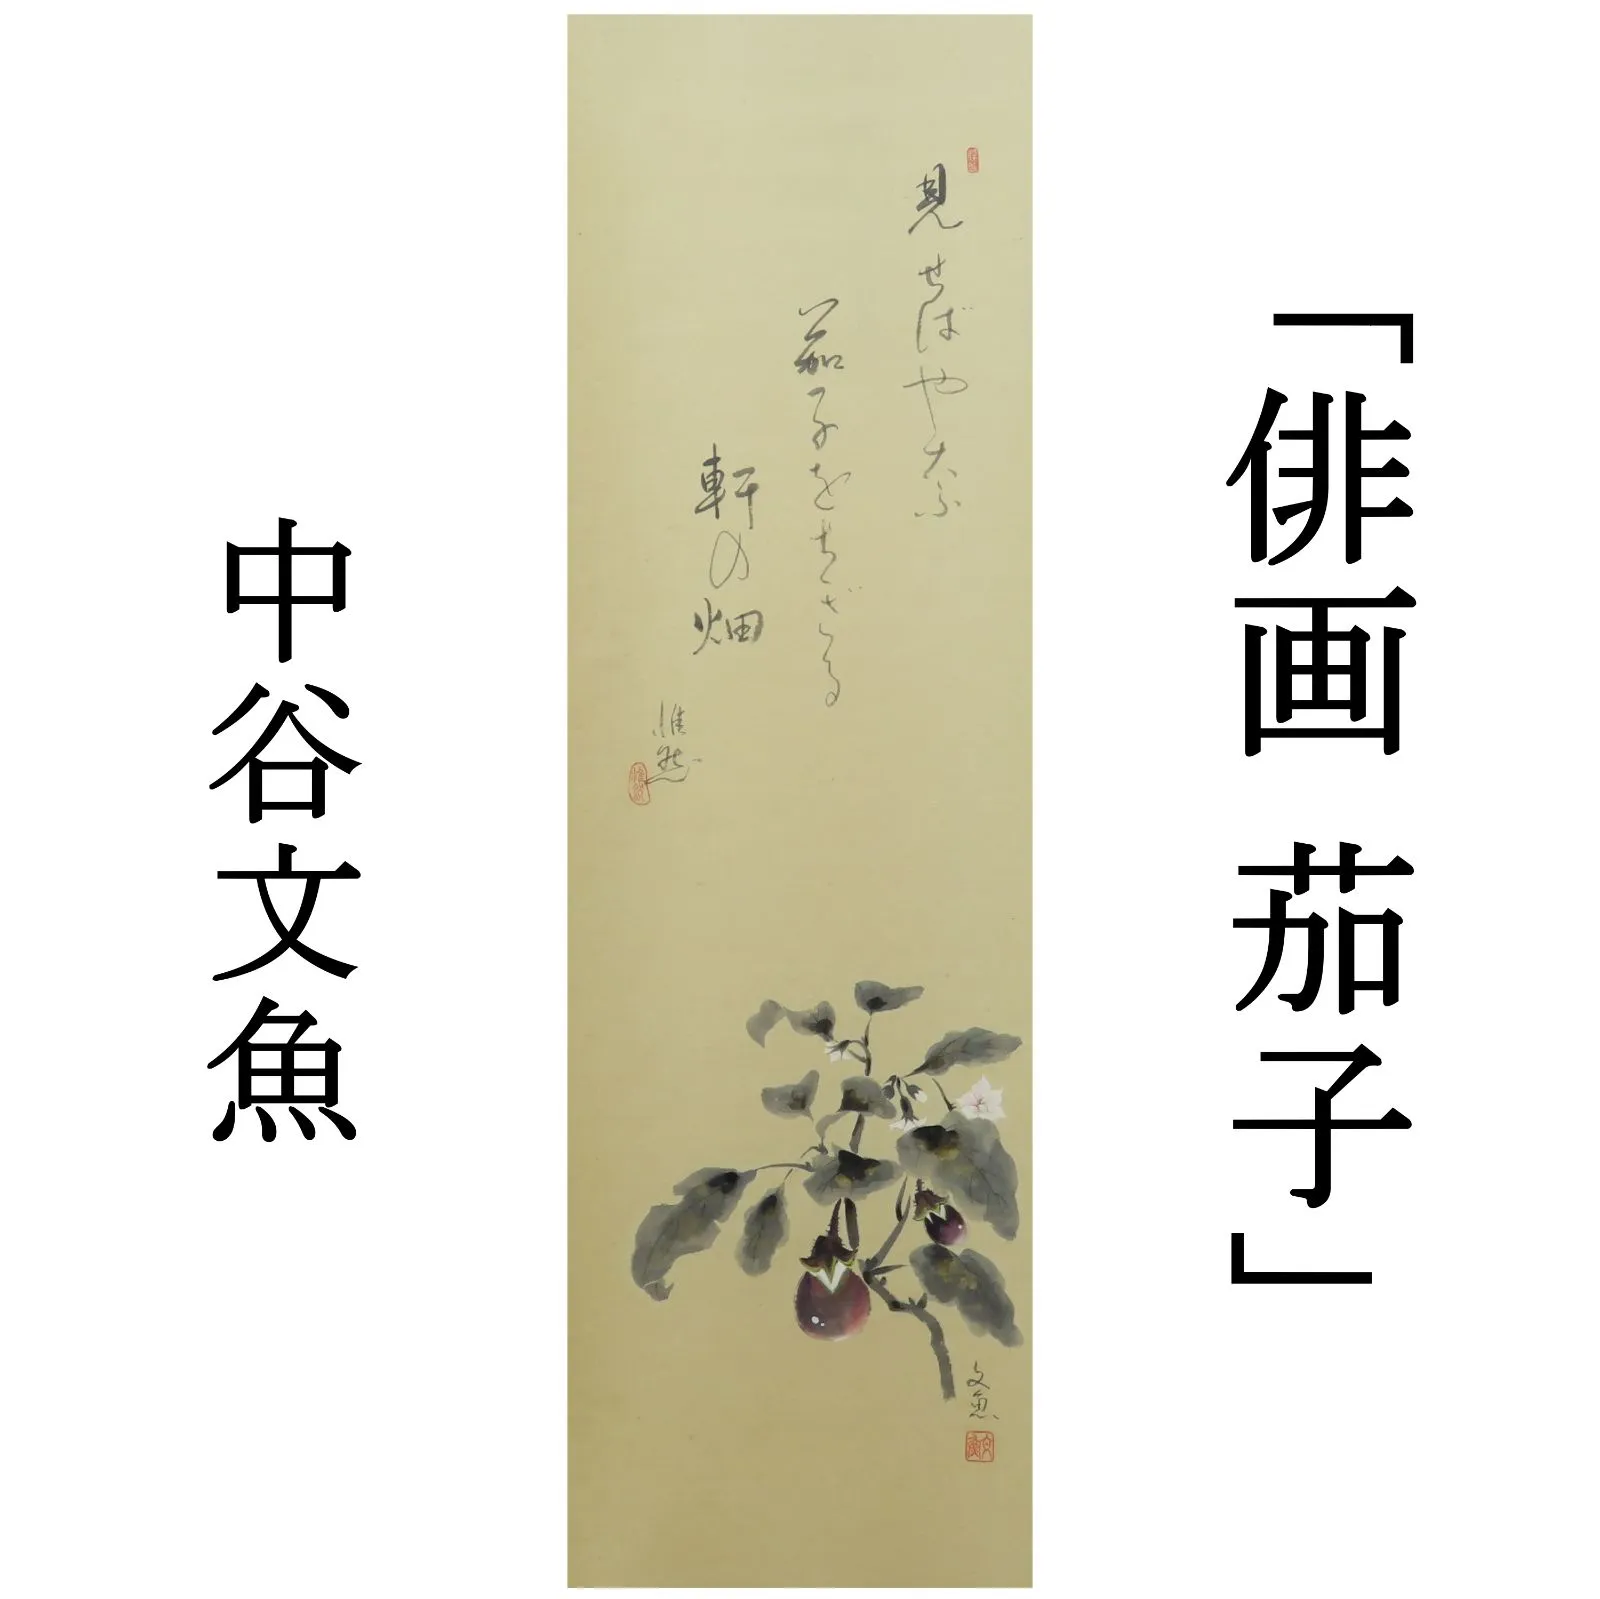 「俳画 茄子」
見せばやな
茄子をちぎる
軒の畑
惟然
文魚
中谷文魚